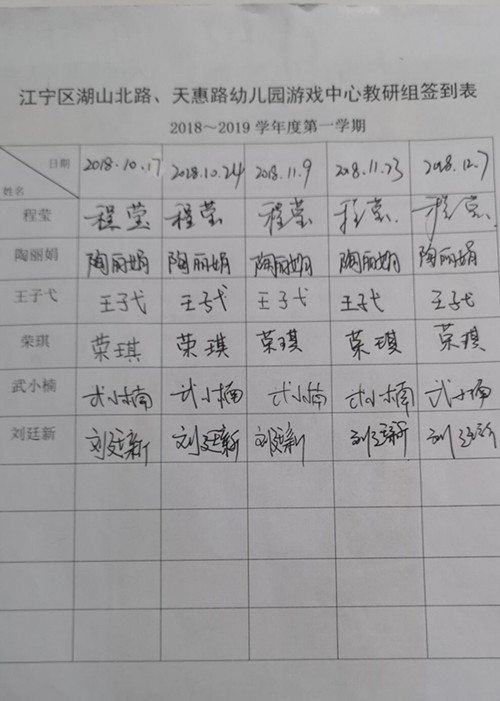 江宁区湖山北路、天惠路幼儿园游戏中心教研组签到表
2018～2019 学年度第一学期
日期 2018.10.17 2018.10.24 2018.11.9 2018.11.23 2018.12.7
姓名
程莹 程莹 程莹 程莹 程莹 程莹
陶丽娟 陶丽娟 陶丽娟 陶丽娟 陶丽娟 陶丽娟
王子弋 王子弋 王子弋 王子弋 王子弋 王子弋
荣琪 荣琪 荣琪 荣琪 荣琪 荣琪
武小楠 武小楠 武小楠 武小楠 武小楠 武小楠
刘廷新 刘廷新 刘廷新 刘廷新 刘廷新 刘廷新